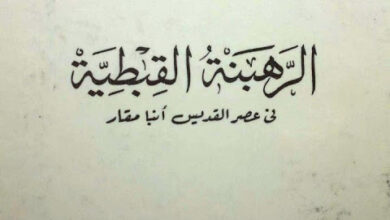 الرَّهبَنَةُ القِبْطِيَّة
في عصر القديس أنبا مقار